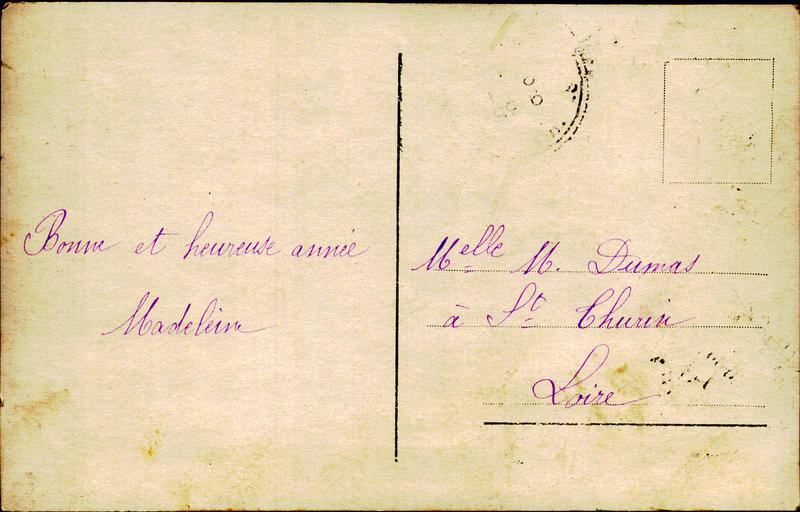 Bonne et heureuse année
Madeleine
Melle M. Dumas
à St Thurin
Loire